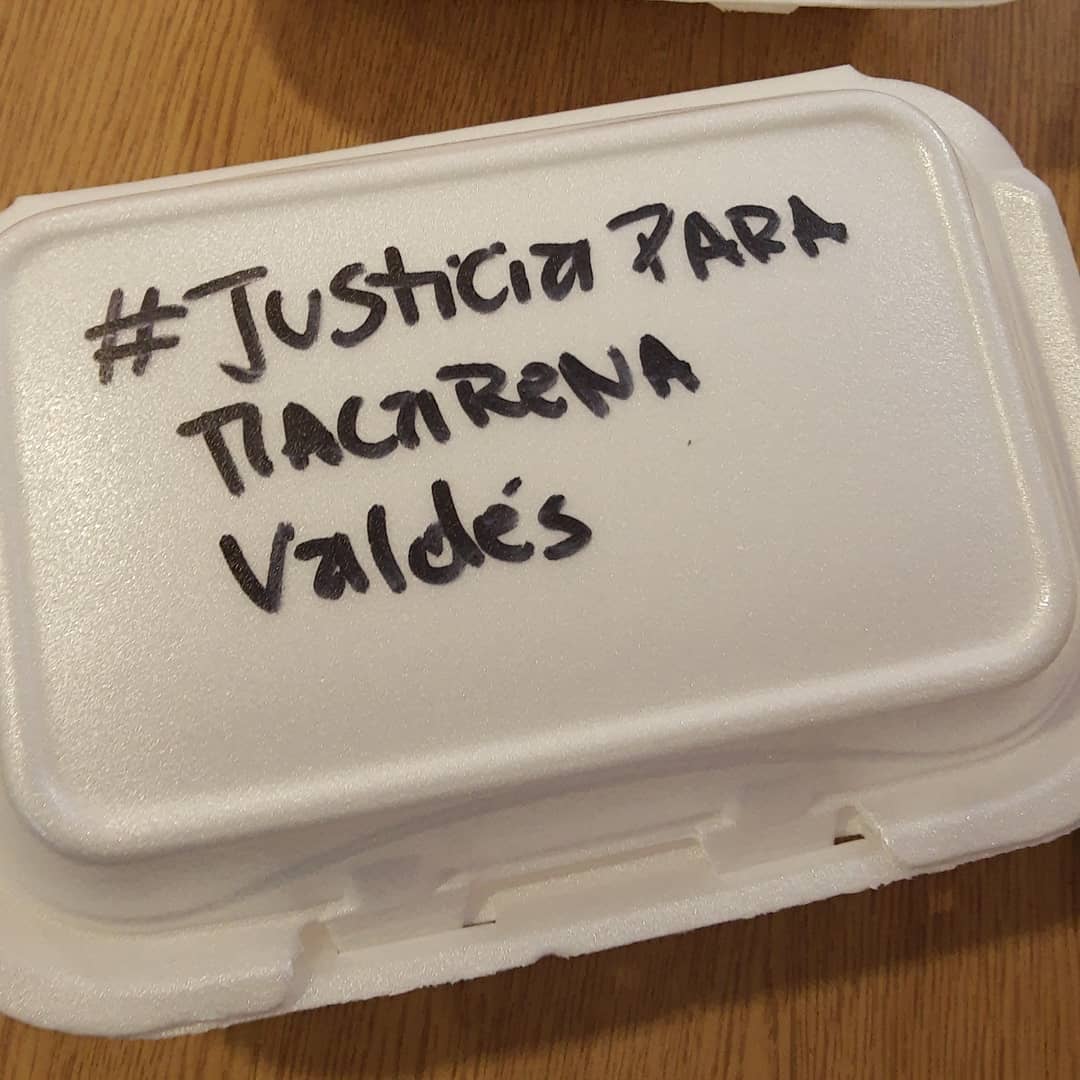 #Justicia PARA
MACaReNA
Valdés